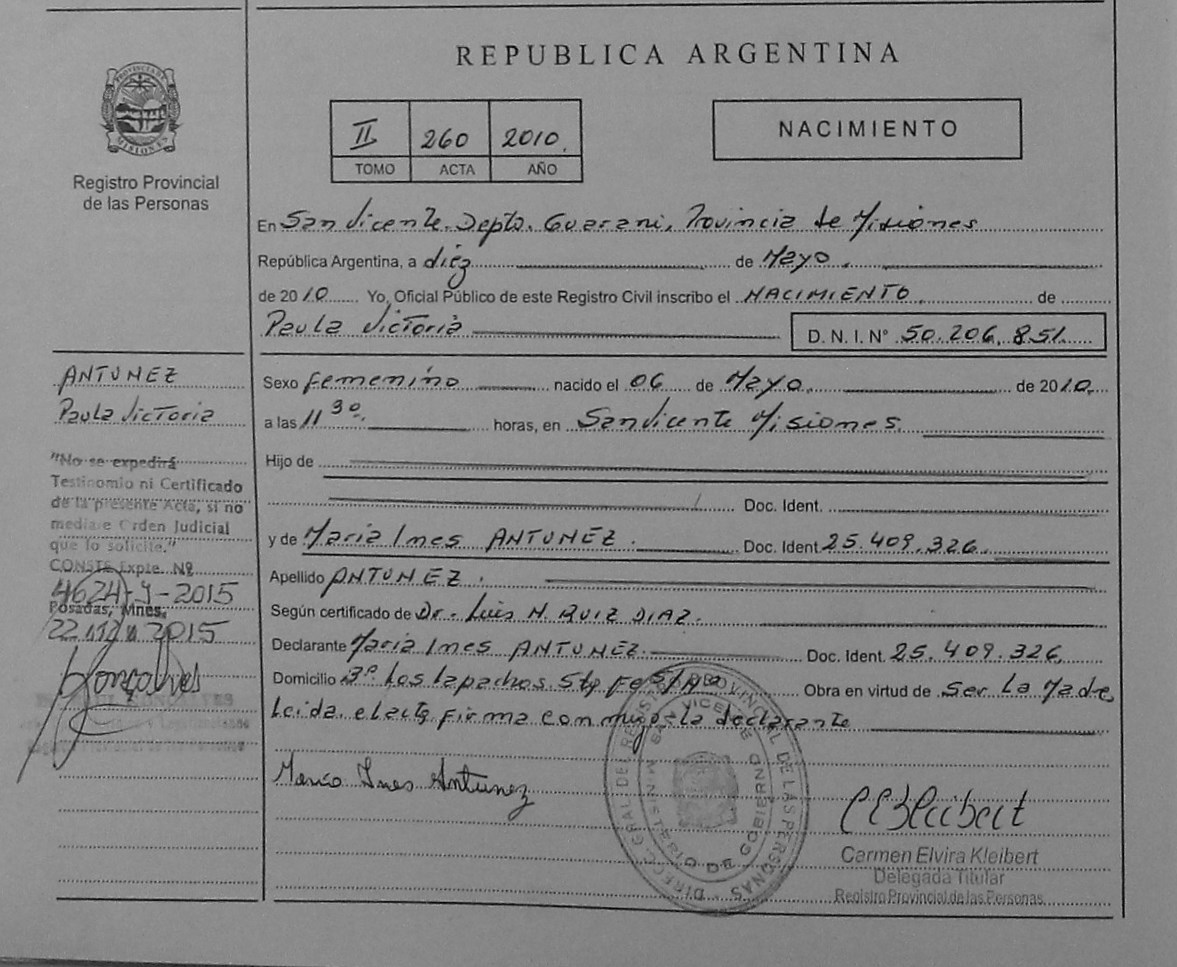 REPUBLICA ARGENTINA
PROVINCIA DE
MISIONES
Registro Provincial
de las Personas
II 260 2010.
TOMO ACTA AÑO
NACIMIENTO
En San Vicente. Depto. Guarani, Provincia de Misiones
República Argentina, a diéz de Mayo.
de 2010 Yo, Oficial Público de este Registro Civil inscribo el NACIMIENTO. de
Paula Victoria D. N. I. Nº 50.206.851.
ANTUNEZ
Paula Victoria
Sexo Femenino nacido el 06 de Mayo. de 2010.
a las 11 30. horas, en San Vicente Misiones.
"No se expedirá
Testimonio ni Certificado
de la presente Acta, si no
mediare Orden Judicial
que lo solicite."
CONSTE Expte. Nº
4624-J-2015
Posadas, Mnes.
22 2015
Hijo de
Doc. Ident.
y de Maria Ines ANTUNEZ. Doc. Ident 25.409.326.
Apellido ANTUNEZ.
Según certificado de Dr. Luis N. RUIZ DIAZ.
Declarante Maria Ines ANTUNEZ. Doc. Ident. 25.409.326.
Domicilio Bº. Los Lapachos Obra en virtud de Ser La Madre
Leida el acta firma conmigo la declarante
Maria Ines Antunez
DIREC. GRAL. DEL REGISTRO PROVINCIAL DE LAS PERSONAS
MINISTERIO DE GOBIERNO
SAN VICENTE
Carmen Elvira Kleibert
Delegada Titular
Registro Provincial de las Personas